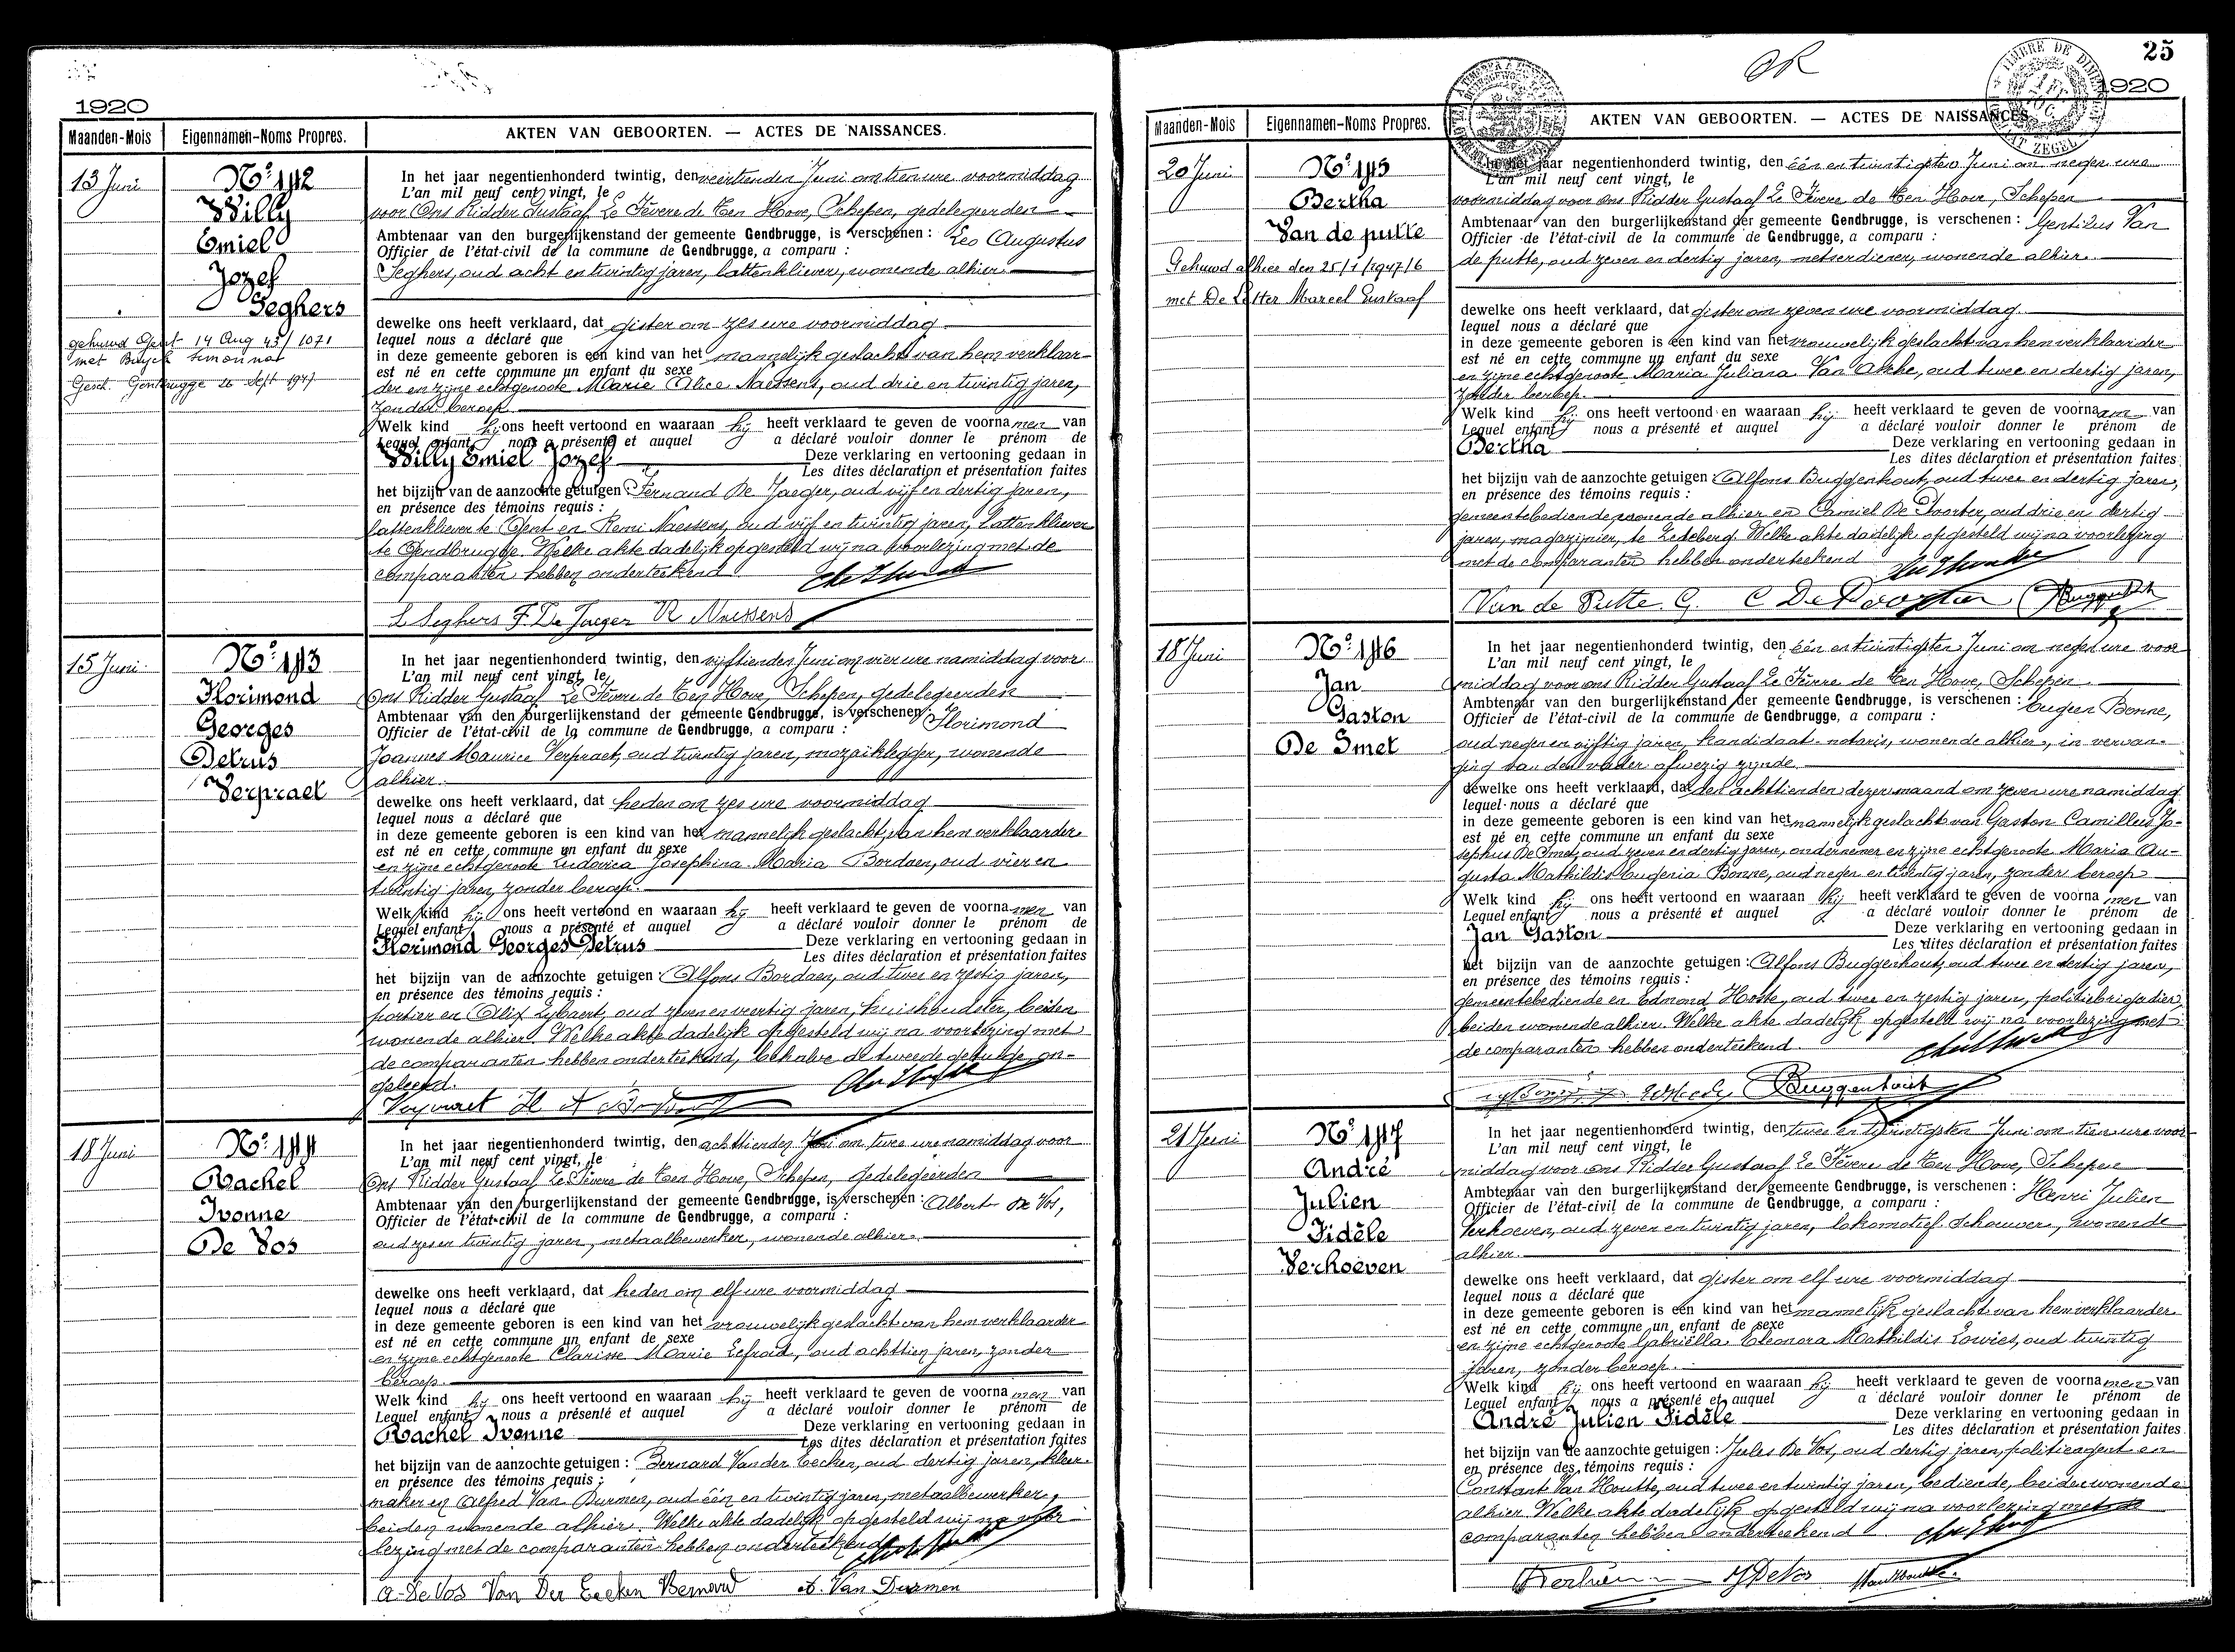 1920
Maanden-Mois Eigennamen-Noms Propres. AKTEN VAN GEBOORTEN. — ACTES DE NAISSANCES.
13 Juni
Nº 142
Willy
Emiel
Jozef
Seghers
gehuwd Gent 14 Aug 43/1071
met Buyck Simonna
Gesch. Gentbrugge 26 Sept 1947
In het jaar negentienhonderd twintig, den veertienden Juni om tien ure voormiddag
L'an mil neuf cent vingt, le
voor Ons Ridder Gustaaf Le Fèvere de Ten Hove, Schepen, gedelegeerden
Ambtenaar van den burgerlijkenstand der gemeente Gendbrugge, is verschenen : Leo Augustus
Officier de l'état-civil de la commune de Gendbrugge, a comparu :
Seghers, oud acht en twintig jaren, lattenkliever, wonende alhier.
dewelke ons heeft verklaard, dat gister om zes ure voormiddag
lequel nous a déclaré que
in deze gemeente geboren is een kind van het mannelijk geslacht van hem verklaar-
est né en cette commune un enfant du sexe
der en zijne echtgenoote Marie Alice Naessens, oud drie en twintig jaren,
zonder beroep
Welk kind hij ons heeft vertoond en waaraan hij heeft verklaard te geven de voornamen van
Lequel enfant nous a présenté et auquel a déclaré vouloir donner le prénom de
Willy Emiel Jozef Deze verklaring en vertooning gedaan in
Les dites déclaration et présentation faites
het bijzijn van de aanzochte getuigen : Fernand De Jaeger, oud vijf en dertig jaren,
en présence des témoins requis :
lattenkliever te Gent en Remi Naessens, oud vijf en twintig jaren, lattenkliever
te Gendbrugge. Welke akte dadelijk opgesteld wij na voorlezing met de
comparanten hebben onderteekend
L Seghers F. De Jaeger R Naessens
15 Juni
Nº 143
Florimond
Georges
Petrus
Verpraet
In het jaar negentienhonderd twintig, den vijftienden Juni om vier ure namiddag voor
L'an mil neuf cent vingt, le
Ons Ridder Gustaaf Le Fèvere de Ten Hove, Schepen, gedelegeerden
Ambtenaar van den burgerlijkenstand der gemeente Gendbrugge, is verschenen : Florimond
Officier de l'état-civil de la commune de Gendbrugge, a comparu :
Joannes Maurice Verpraet, oud twintig jaren, mozaïklegger, wonende
alhier.
dewelke ons heeft verklaard, dat heden om zes ure voormiddag
lequel nous a déclaré que
in deze gemeente geboren is een kind van het mannelijk geslacht, van hem verklaarder
est né en cette commune un enfant du sexe
en zijne echtgenoote Ludovica Josephina Maria Bordaen, oud vier en
twintig jaren, zonder beroep.
Welk kind hij ons heeft vertoond en waaraan hij heeft verklaard te geven de voornamen van
Lequel enfant nous a présenté et auquel a déclaré vouloir donner le prénom de
Florimond Georges Petrus Deze verklaring en vertooning gedaan in
Les dites déclaration et présentation faites
het bijzijn van de aanzochte getuigen : Alfons Bordaen, oud twee en zestig jaren,
en présence des témoins requis :
portier en Alix Lybaert, oud zeven en veertig jaren, huishoudster, beiden
wonende alhier. Welke akte dadelijk opgesteld wij na voorlezing met
de comparanten hebben onderteekend, behalve de tweede getuige on-
geleerd.
18 Juni
Nº 144
Rachel
Ivonne
De Vos
In het jaar negentienhonderd twintig, den achttienden Juni om twee ure namiddag voor
L'an mil neuf cent vingt, le
Ons Ridder Gustaaf Le Fèvere de Ten Hove, Schepen, gedelegeerden
Ambtenaar van den burgerlijkenstand der gemeente Gendbrugge, is verschenen : Albert De Vos,
Officier de l'état-civil de la commune de Gendbrugge, a comparu :
oud zes en twintig jaren, metaalbewerker, wonende alhier.
dewelke ons heeft verklaard, dat heden om elf ure voormiddag
lequel nous a déclaré que
in deze gemeente geboren is een kind van het vrouwelijk geslacht van hem verklaarder
est né en cette commune un enfant de sexe
en zijne echtgenoote Clarisse Marie Lefroid, oud achttien jaren, zonder
beroep.
Welk kind hij ons heeft vertoond en waaraan hij heeft verklaard te geven de voornamen van
Lequel enfant nous a présenté et auquel a déclaré vouloir donner le prénom de
Rachel Ivonne Deze verklaring en vertooning gedaan in
Les dites déclaration et présentation faites
het bijzijn van de aanzochte getuigen : Bernard Vander Eecken, oud dertig jaren, kleer-
en présence des témoins requis :
maker en Alfred Van Durmen, oud één en twintig jaren, metaalbewerker,
beiden wonende alhier. Welke akte dadelijk opgesteld wij na voor-
lezing met de comparanten hebben onderteekend
A. De Vos Van Der Eecken Bernard A. Van Durmen
25
1920
Maanden-Mois Eigennamen-Noms Propres. AKTEN VAN GEBOORTEN. — ACTES DE NAISSANCES.
20 Juni
Nº 145
Bertha
Van de putte
Gehuwd alhier den 25/1/1947/6
met De Letter Marcel Eustaaf
In het jaar negentienhonderd twintig, den één en twintigsten Juni om negen ure
L'an mil neuf cent vingt, le
voormiddag voor ons Ridder Gustaaf Le Fèvere de Ten Hove, Schepen
Ambtenaar van den burgerlijkenstand der gemeente Gendbrugge, is verschenen : Gentilus Van
Officier de l'état-civil de la commune de Gendbrugge, a comparu :
de putte, oud zeven en dertig jaren, metserdiener, wonende alhier.
dewelke ons heeft verklaard, dat gister om zeven ure voormiddag.
lequel nous a déclaré que
in deze gemeente geboren is een kind van het vrouwelijk geslacht van hem verklaarder
est né en cette commune un enfant du sexe
en zijne echtgenoote Maria Juliana Van Akke, oud twee en dertig jaren,
zonder beroep.
Welk kind hij ons heeft vertoond en waaraan hij heeft verklaard te geven de voornaam van
Lequel enfant nous a présenté et auquel a déclaré vouloir donner le prénom de
Bertha Deze verklaring en vertooning gedaan in
Les dites déclaration et présentation faites
het bijzijn van de aanzochte getuigen : Alfons Buggenhout, oud twee en dertig jaren,
en présence des témoins requis :
gemeentebediende wonende alhier en Camiel De Poorter, oud drie en dertig
jaren, magazijnier, te Ledeberg. Welke akte dadelijk opgesteld wij na voorlezing
met de comparanten hebben onderteekend
Van de Putte. G. C De Poorter Buggenhout
18 Juni
Nº 146
Jan
Gaston
De Smet
In het jaar negentienhonderd twintig, den één en twintigsten Juni om negen ure voor
L'an mil neuf cent vingt, le
middag voor ons Ridder Gustaaf Le Fèvere de Ten Hove, Schepen
Ambtenaar van den burgerlijkenstand der gemeente Gendbrugge, is verschenen : Eugeen Bonne,
Officier de l'état-civil de la commune de Gendbrugge, a comparu :
oud negen en vijftig jaren, kandidaat-notaris, wonende alhier, in vervan-
ging van den vader afwezig zijnde
dewelke ons heeft verklaard, dat den achttienden dezer maand om zeven ure namiddag
lequel nous a déclaré que
in deze gemeente geboren is een kind van het mannelijk geslacht van Gaston Camillus Jo-
est né en cette commune un enfant du sexe
sephus De Smet, oud zeven en dertig jaren, ondernemer en zijne echtgenoote Maria Au-
gusta Mathildis Eugenia Bonne, oud negen en twintig jaren, zonder beroep
Welk kind hij ons heeft vertoond en waaraan hij heeft verklaard te geven de voornamen van
Lequel enfant nous a présenté et auquel a déclaré vouloir donner le prénom de
Jan Gaston Deze verklaring en vertooning gedaan in
Les dites déclaration et présentation faites
het bijzijn van de aanzochte getuigen : Alfons Buggenhout, oud twee en dertig jaren,
en présence des témoins requis :
gemeentebediende en Edmond Hoste, oud twee en zestig jaren, politiebrigadier,
beiden wonende alhier. Welke akte dadelijk opgesteld wij na voorlezing met
de comparanten hebben onderteekend.
Buggenhout
21 Juni
Nº 147
André
Julien
Fidèle
Verhoeven
In het jaar negentienhonderd twintig, den twee en twintigsten Juni om tien ure voor
L'an mil neuf cent vingt, le
middag voor ons Ridder Gustaaf Le Fèvere de Ten Hove, Schepen
Ambtenaar van den burgerlijkenstand der gemeente Gendbrugge, is verschenen : Henri Julien
Officier de l'état-civil de la commune de Gendbrugge, a comparu :
Verhoeven, oud zeven en twintig jaren, lokomotief schouwer, wonende
alhier.
dewelke ons heeft verklaard, dat gister om elf ure voormiddag
lequel nous a déclaré que
in deze gemeente geboren is een kind van het mannelijk geslacht van hem verklaarder
est né en cette commune un enfant de sexe
en zijne echtgenoote Gabriëlla Eleonora Mathildis Lowies, oud twintig
jaren, zonder beroep.
Welk kind hij ons heeft vertoond en waaraan hij heeft verklaard te geven de voornamen van
Lequel enfant nous a présenté et auquel a déclaré vouloir donner le prénom de
André Julien Fidèle Deze verklaring en vertooning gedaan in
Les dites déclaration et présentation faites
het bijzijn van de aanzochte getuigen : Jules De Vos, oud dertig jaren, politieagent en
en présence des témoins requis :
Constant Van Houtte, oud twee en twintig jaren, bediende, beiden wonende
alhier. Welke akte dadelijk opgesteld wij na voorlezing met de
comparanten hebben onderteekend
J De Vos VanHoutte